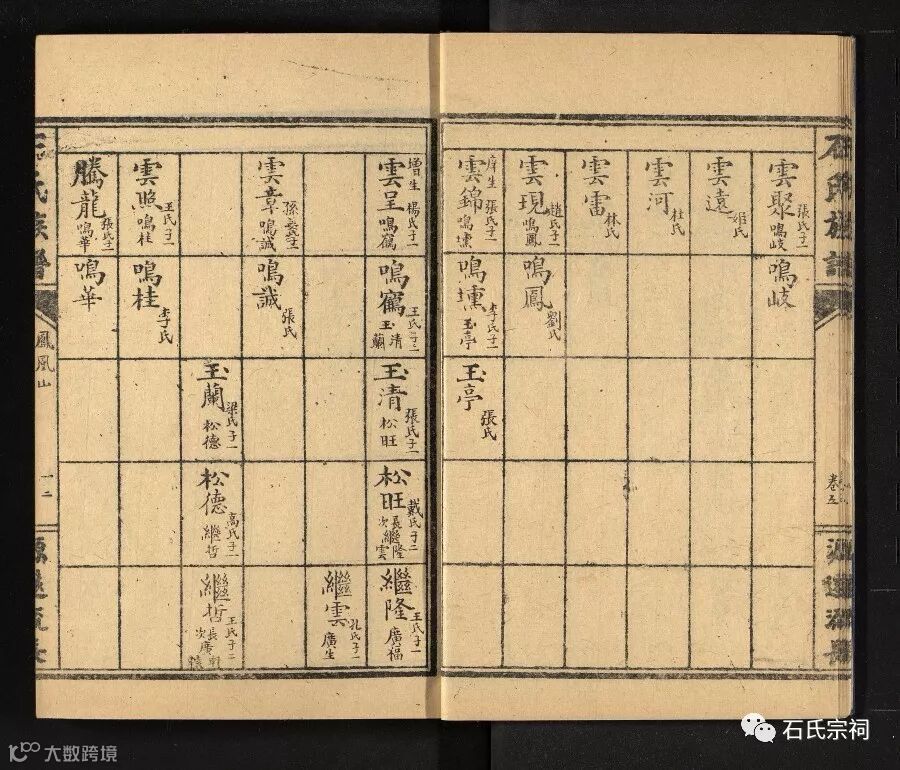 石氏族譜
卷五
源遠流長
雲聚 張氏子一 鳴岐
雲遠 姬氏
雲河 杜氏
雲雷 林氏
雲現 趙氏子一 鳴鳳
庠生 雲錦 張氏子一 鳴壎
鳴岐
鳴鳳 劉氏
鳴壎 李氏子一 玉亭
玉亭 張氏
增生 雲呈 楊氏子一 鳴鶴
雲章 孫氏子一 鳴誠
雲照 王氏子一 鳴桂
騰龍 張氏子一 鳴華
鳴鶴 王氏子二 玉清 玉蘭
鳴誠 張氏
鳴桂 李氏
鳴華
玉清 張氏子一 松旺
玉蘭 梁氏子一 松德
松旺 戴氏子二 長繼隆 次繼雲
松德 高氏子一 繼哲
繼隆 王氏子一 廣福
繼雲 孔氏子一 廣生
繼哲 王氏子二 長廣 次
石氏族譜
鳳凰山
一二
源遠流長
石氏宗祠
K100 大数跨境